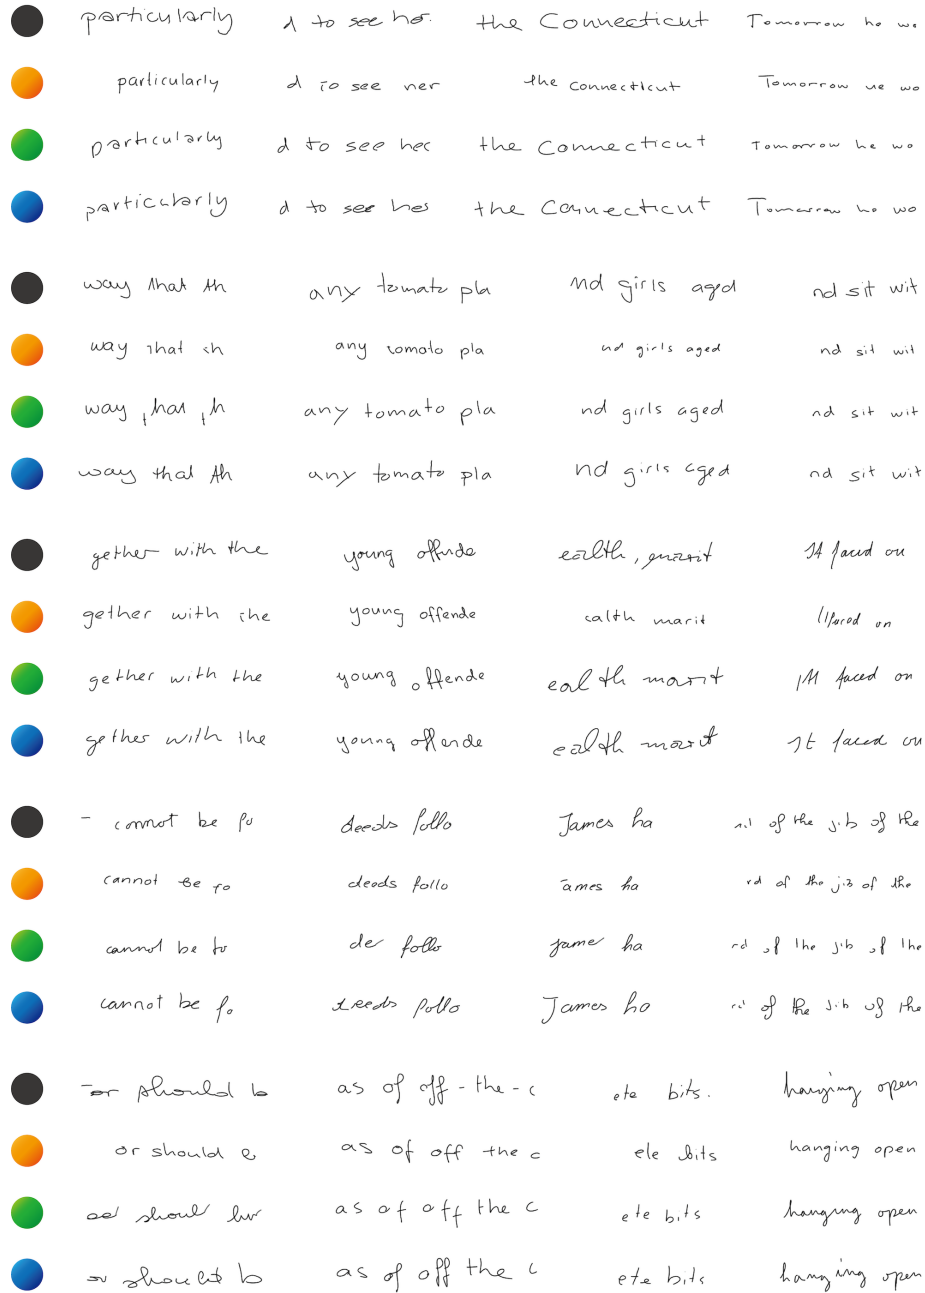 particularly d to see her. the Connecticut Tomorrow he wo
particularly d to see ner the Connecticut Tomorrow ue wo
particularly d to see hec the Connecticut Tomorrow he wo
particularly d to see hes the Connecticut Tomorrow he wo
way that th any tomato pla nd girls aged nd sit wit
way that th any tomato pla nd girls aged nd sit wit
way that th any tomato pla nd girls aged nd sit wit
way that th any tomato pla nd girls aged nd sit wit
gether with the young offende ealth, marit It faced on
gether with the young offende ealth marit faced on
gether with the young offende ealth marit faced on
gether with the young offende ealth marit It faced on
- cannot be fo deeds follo James ha of the jib of the
cannot be fo deeds follo ames ha rd of the jib of the
cannot be to de follo jame ha rd of the jib of the
cannot be fo deeds follo James ha of the jib of the
-or should b as of off-the-c ete bits. hanging open
or should as of off the c ele bits hanging open
shoul as of off the c ete bits hanging open
or b as of off the c ete bits hanging open